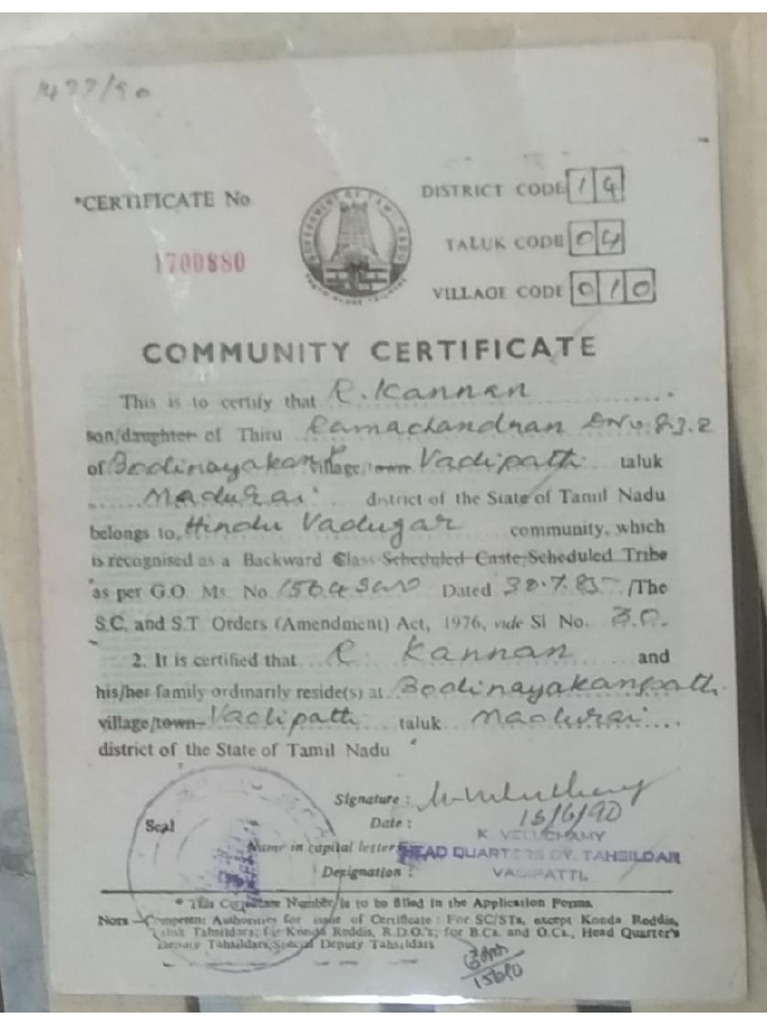 1477/90
*CERTIFICATE No
1700880
GOVERNMENT OF TAMIL NADU
DISTRICT CODE 14
TALUK CODE 04
VILLAGE CODE 010
COMMUNITY CERTIFICATE
This is to certify that R. Kannan
son/daughter of Thiru Ramachandran DNo 8.3.2
of Bodinayakan village/town Vadipatti taluk
Madurai district of the State of Tamil Nadu
belongs to Hindu Vadugar community, which
is recognised as a Backward Class Scheduled Caste/Scheduled Tribe
as per G.O Ms. No. 1564 SWD Dated 30.7.85 /The
S.C. and S.T Orders (Amendment) Act, 1976, vide Sl No. 30.
2. It is certified that R. Kannan and
his/her family ordinarily reside(s) at Bodinayakanpatti
village/town Vadipatti taluk Madurai
district of the State of Tamil Nadu
Seal
Signature :
Date : 15/6/90
Name in capital letter K. VELUCHAMY
Designation : HEAD QUARTERS DY. TAHSILDAR
VADIPATTI.
* This Certificate Number is to be filled in the Application Forms.
NOTE—Competent Authorities for issue of Certificate : For SC/STs, except Konda Reddis,
Taluk Tahsildars; for Konda Reddis, R.D.O.'s; for B.Cs. and O.Cs., Head Quarter's
Deputy Tahsildars/Special Deputy Tahsildars
15690